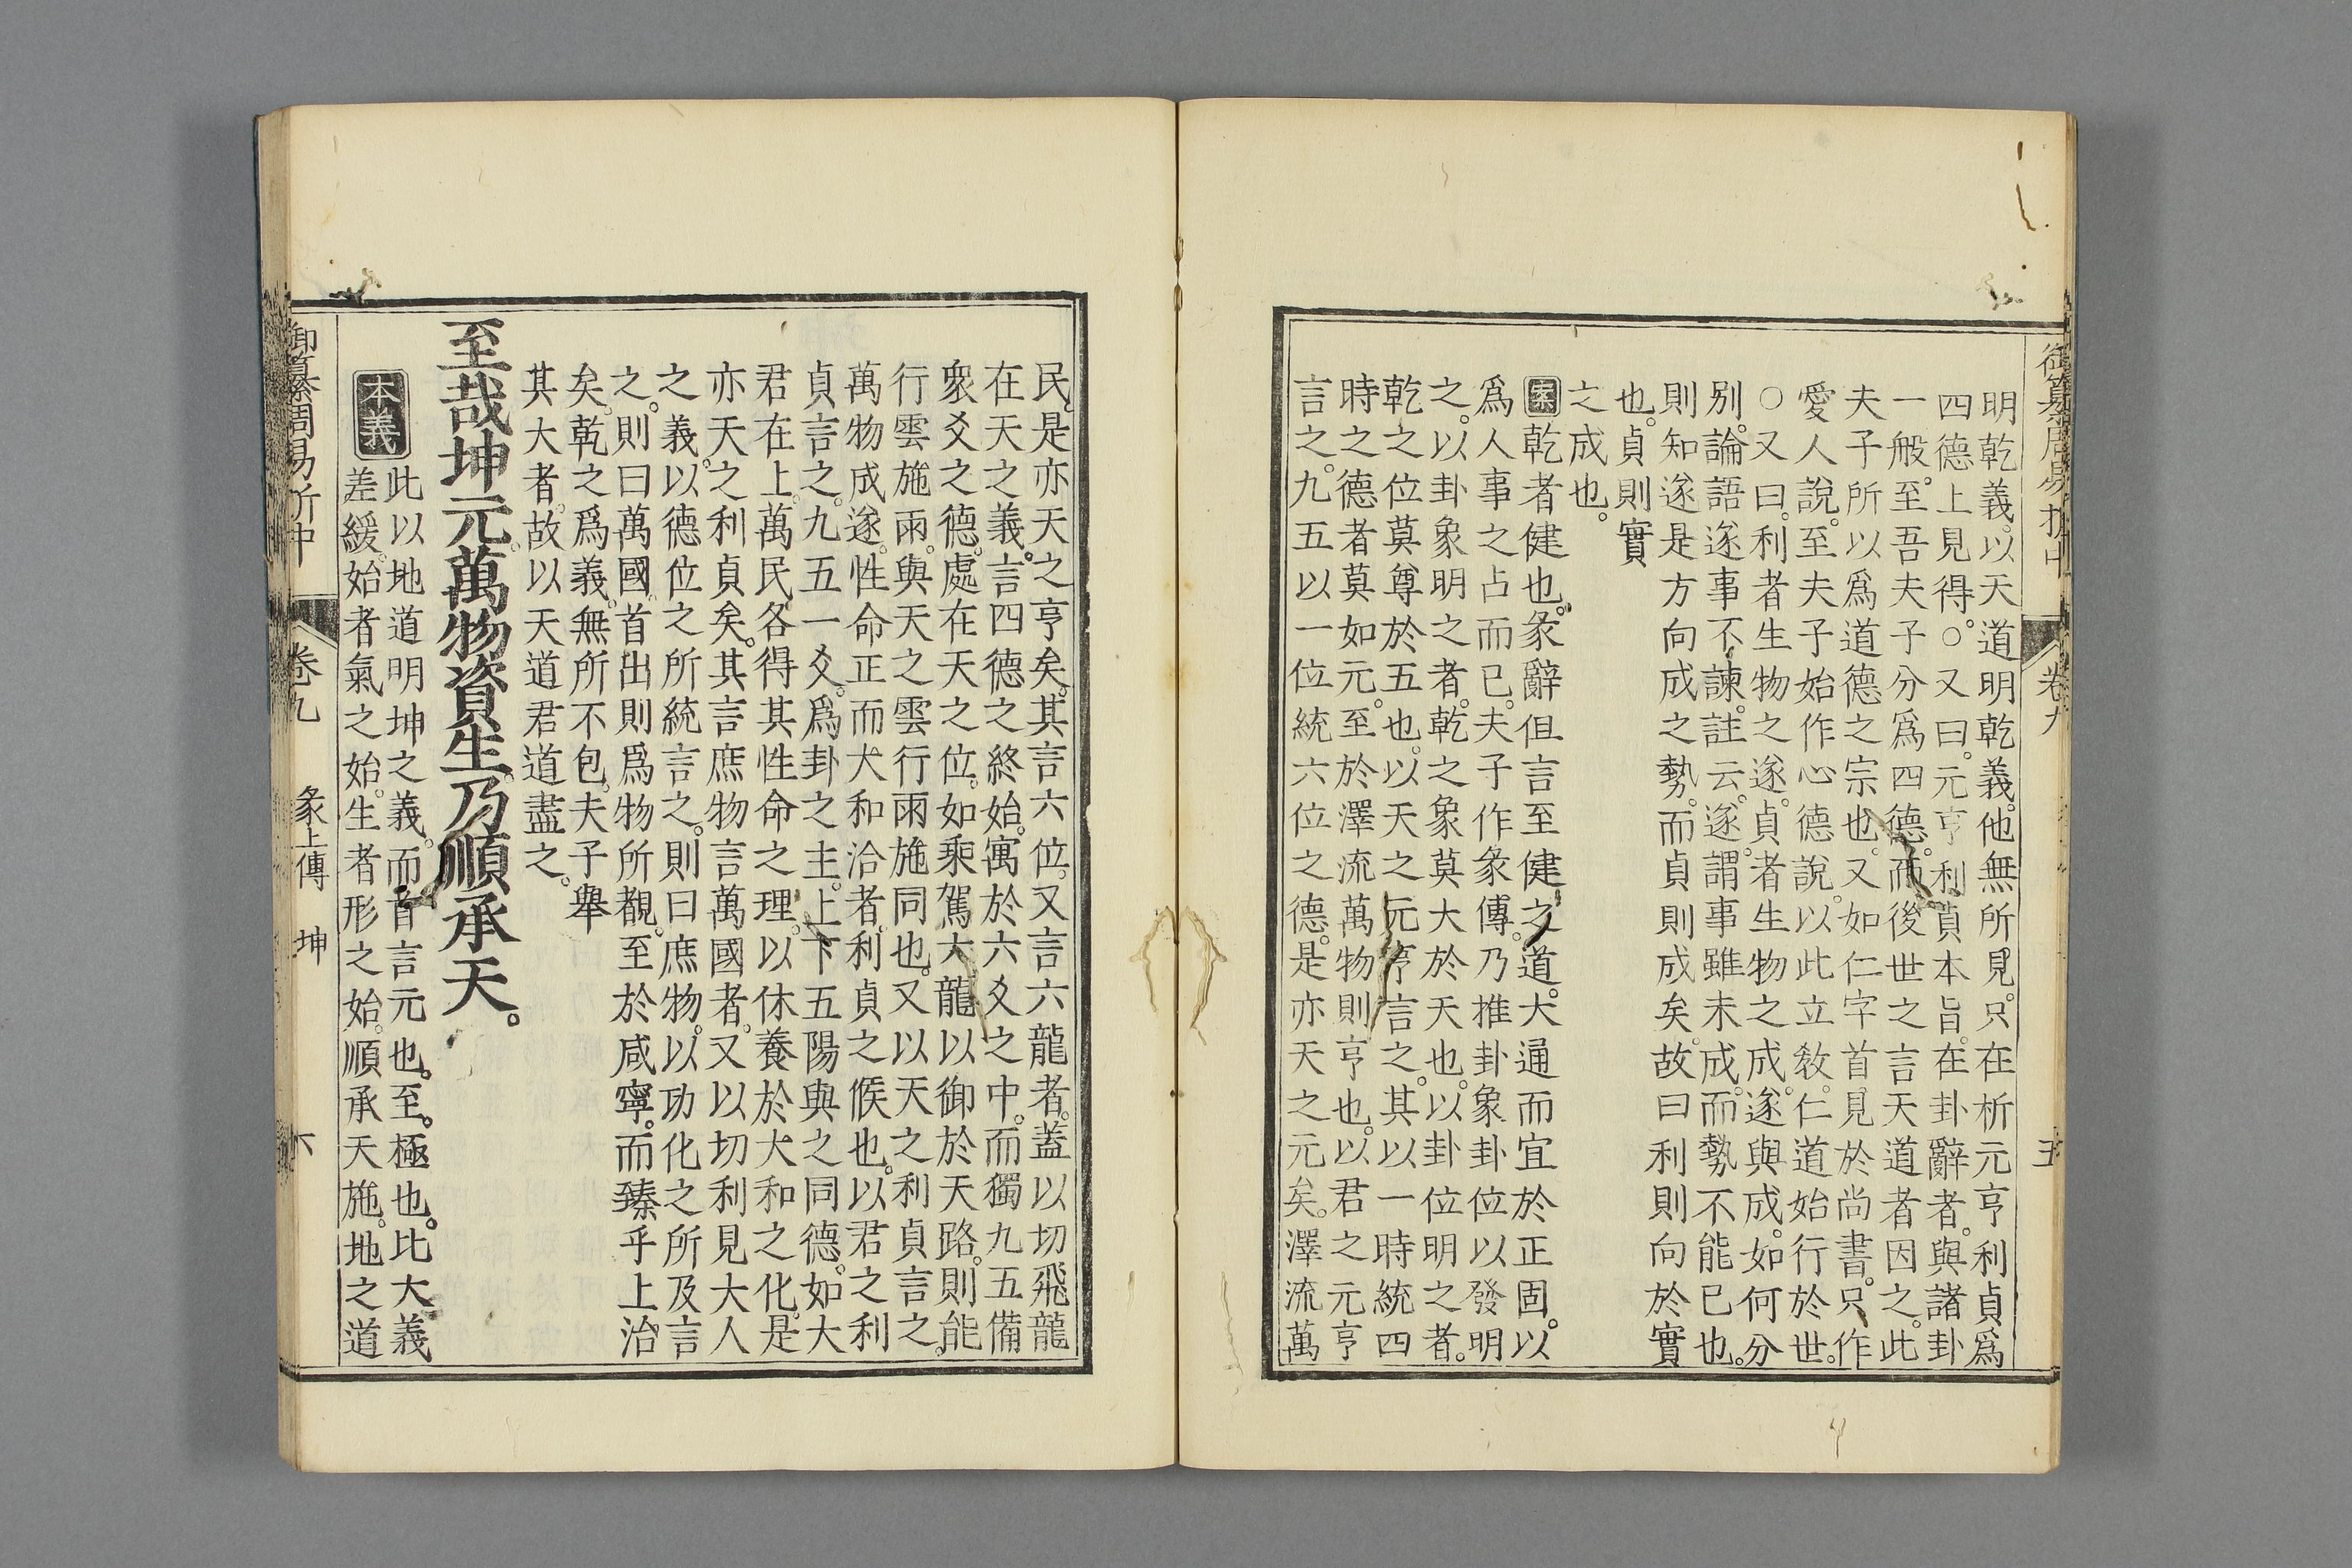 御纂周易折中 卷九 五
明乾義。以天道明乾義。他無所見。只在析元亨利貞爲
四德上見得。○又曰。元亨利貞本旨。在卦辭者。與諸卦
一般。至吾夫子分爲四德。而後世之言天道者因之。此
夫子所以爲道德之宗也。又如仁字首見於尚書。只作
愛人說。至夫子始作心德說。以此立教。仁道始行於世。
○又曰。利者生物之遂。貞者生物之成。遂與成。如何分
別。論語遂事不諫。註云。遂。謂事雖未成。而勢不能已也。
則知遂是方向成之勢。而貞則成矣。故曰利則向於實
也。貞則實
之成也。
案乾者健也。彖辭但言至健之道。大通而宜於正固。以
爲人事之占而已。夫子作彖傳。乃推卦象卦位以發明
之。以卦象明之者。乾之象莫大於天也。以卦位明之者。
乾之位莫尊於五也。以天之元亨言之。其以一時統四
時之德者莫如元。至於澤流萬物則亨也。以君之元亨
言之。九五以一位統六位之德。是亦天之元矣。澤流萬
民。是亦天之亨矣。其言六位。又言六龍者。蓋以切飛龍
在天之義。言四德之終始。寓於六爻之中。而獨九五備
衆爻之德。處在天之位。如乘駕六龍以御於天路。則能
行雲施雨。與天之雲行雨施同也。又以天之利貞言之。
萬物成遂。性命正而大和洽者。利貞之候也。以君之利
貞言之。九五一爻。爲卦之主。上下五陽與之同德。如大
君在上。萬民各得其性命之理。以休養於大和之化。是
亦天之利貞矣。其言庶物言萬國者。又以切利見大人
之義。以德位之所統言之。則曰庶物。以功化之所及言
之。則曰萬國。首出則爲物所覩。至於咸寧。而臻乎上治
矣。乾之爲義。無所不包。夫子舉
其大者。故以天道君道盡之。
至哉坤元。萬物資生。乃順承天。
本義 此以地道明坤之義。而首言元也。至。極也。比大義
差緩。始者氣之始。生者形之始。順承天施。地之道
御纂周易折中 卷九 彖上傳 坤 六